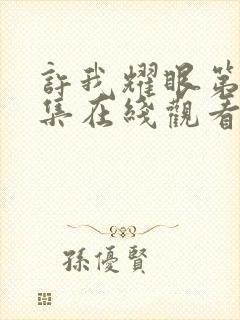 許我耀眼第
集在綫觀看
孫優賢